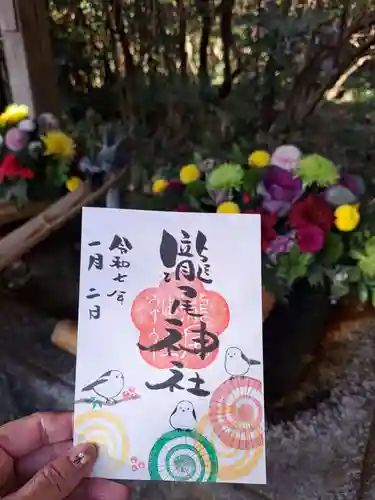 瀧尾神社
令和七年
一月二日